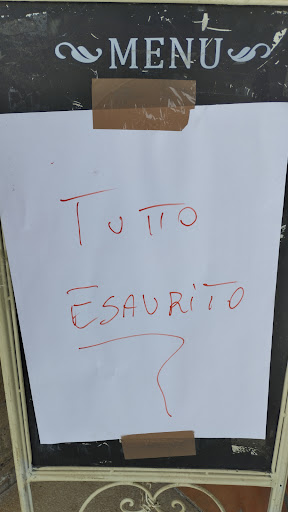 MENU
TUTTO
ESAURITO